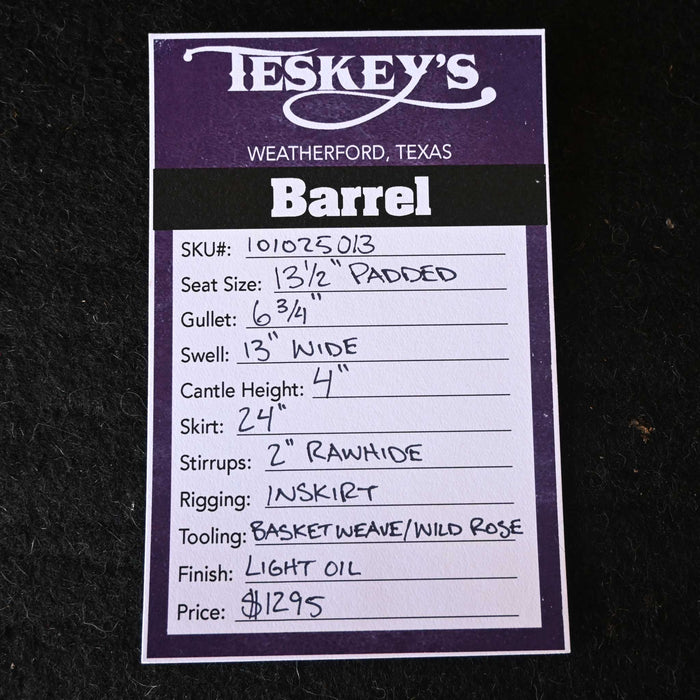 TESKEY'S
WEATHERFORD, TEXAS
Barrel
SKU#: 101025013
Seat Size: 13 1/2" PADDED
Gullet: 6 3/4"
Swell: 13" WIDE
Cantle Height: 4"
Skirt: 24"
Stirrups: 2" RAWHIDE
Rigging: INSKIRT
Tooling: BASKETWEAVE/WILD ROSE
Finish: LIGHT OIL
Price: $1295